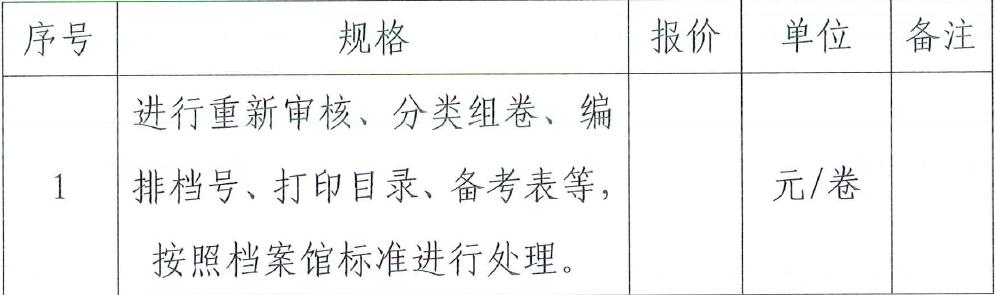 序号 规格 报价 单位 备注
进行重新审核、分类组卷、编
1 排档号、打印目录、备考表等， 元/卷
按照档案馆标准进行处理。